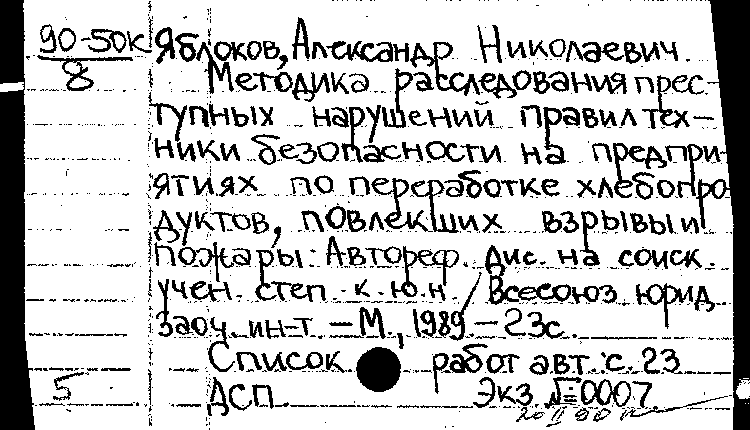 90-50к Яблоков, Александр Николаевич.
8 Методика расследования прес-
тупных нарушений правил тех-
ники безопасности на предпри-
ятиях по переработке хлебопро-
дуктов, повлекших взрывы и
пожары: Автореф. дис. на соиск.
учен. степ. к.ю.н. / Всесоюз. юрид.
заоч. ин-т. – М., 1989. – 23с.
Список работ авт.: с. 23
5 ДСП. Экз. №0007